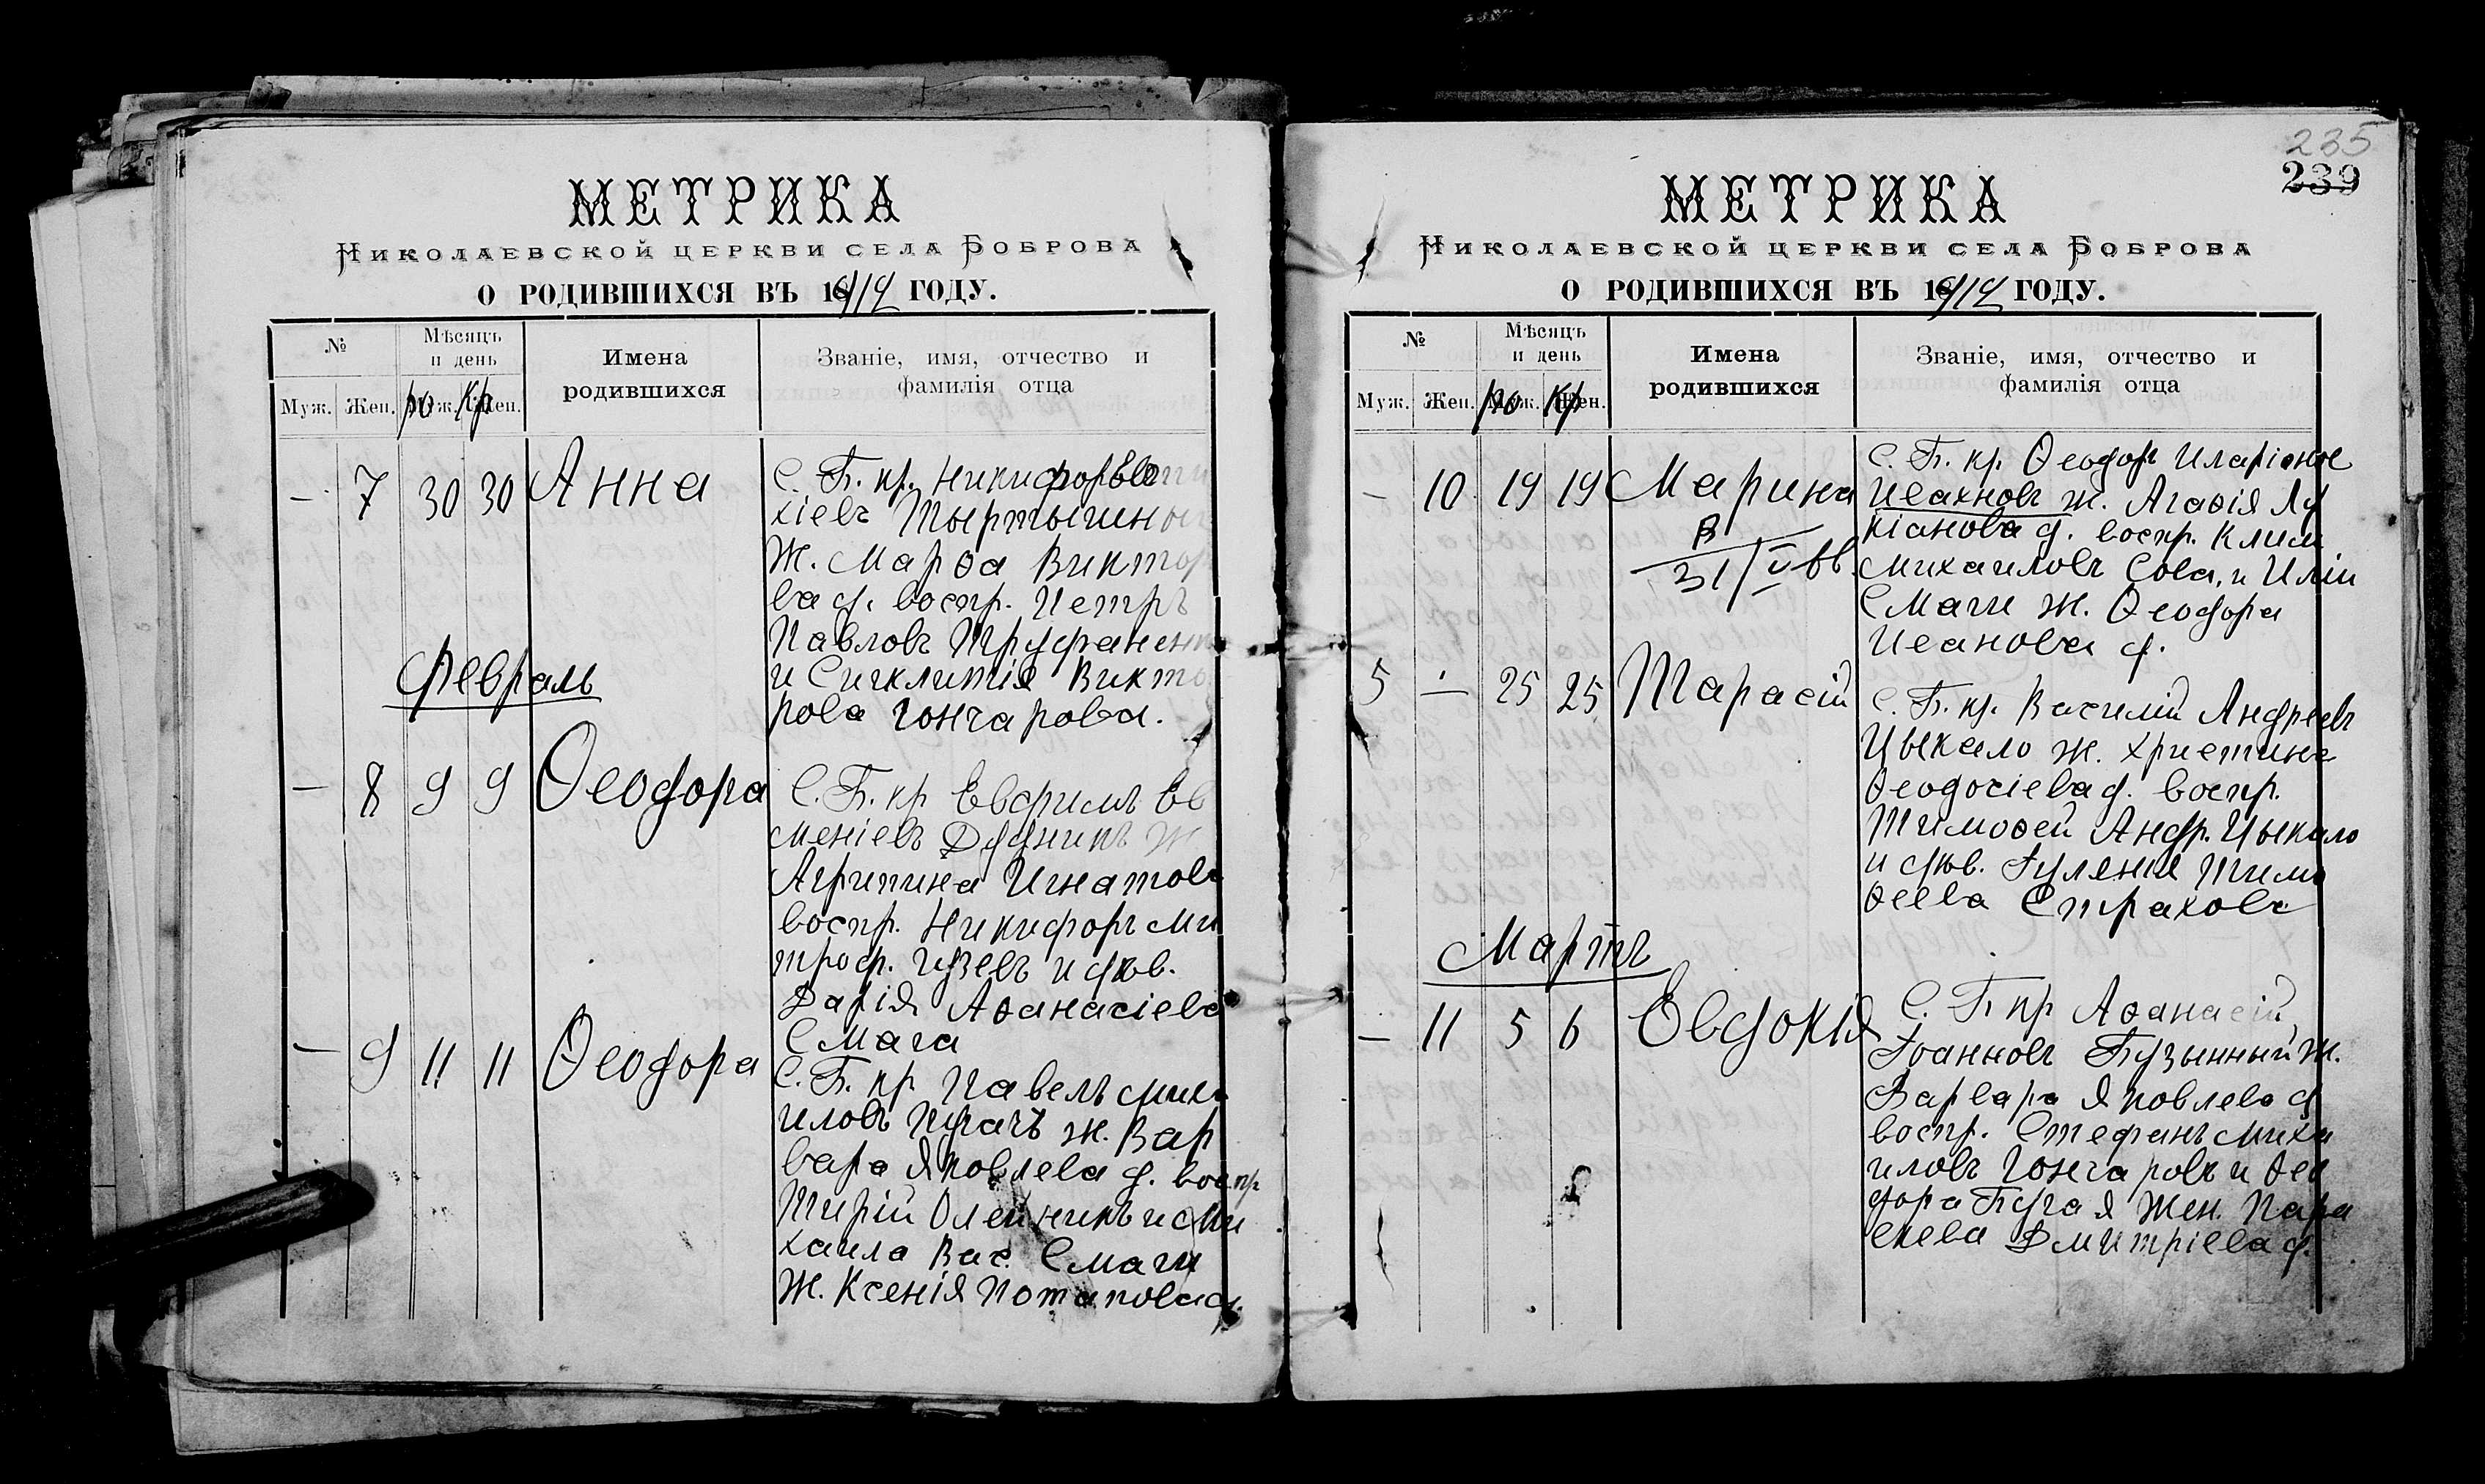 МЕТРИКА
Николаевской церкви села Боброва
О РОДИВШИХСЯ ВЪ 1914 ГОДУ.
№
Мѣсяцъ и день
Имена родившихся
Званіе, имя, отчество и фамилія отца
Муж. Жен. Муж. Жен.
ро кр
— 7 30 30 Анна
С. Б. кр. Никифоръ
хіевъ
Ж. Марѳа Виктор
ва д. воспр. Петръ
Павловъ Труфанен
и Сигклитія Викто
рова Гончарова.
Февраль
— 8 9 9 Ѳеодора
С. Б. кр Евфимъ Ев
меніевъ Дудникъ Ж
Агрипина Игнатова
воспр. Никифоръ Ми
троф. Гузевъ и дѣв.
Дарія Аѳанасіева
Смага
— 9 11 11 Ѳеодора
С. Б. кр Павелъ Миха
иловъ Пугачъ ж. Вар
вара Яковлева д. воспр
Тирій Олейникъ и Ми
хаила Вас. Смаги
Ж. Ксенія Потапова д.
235
239
МЕТРИКА
Николаевской церкви села Боброва
О РОДИВШИХСЯ ВЪ 1914 ГОДУ.
№
Мѣсяцъ и день
Имена родившихся
Званіе, имя, отчество и фамилія отца
Муж. Жен. Муж. Жен.
ро кр
— 10 19 19 Марина
В
31/V
С. Б. кр. Ѳеодоръ Иларіонов
Ивахновъ ж. Агаѳія Лу
кіанова д. воспр. Клим
Михаиловъ Сова, и Иліи
Смаги ж. Ѳеодора
Иванова д.
5 — 25 25 Тарасій
С. Б. кр. Василій Андреевъ
Цыкало ж. Христина
Ѳеодосіева д. воспр.
Тимоѳей Андр. Цыкало
и дѣв. Іуленія Тимо
ѳеева Страхова
Мартъ
— 11 5 6 Евдокія
С. Б кр Аѳанасій
Іоанновъ Бузынный ж.
Варвара Яковлева д
воспр. Стефанъ Миха
иловъ Гончаровъ и Ѳео
дора Бугая Жен. Пара
скева Дмитріева д.